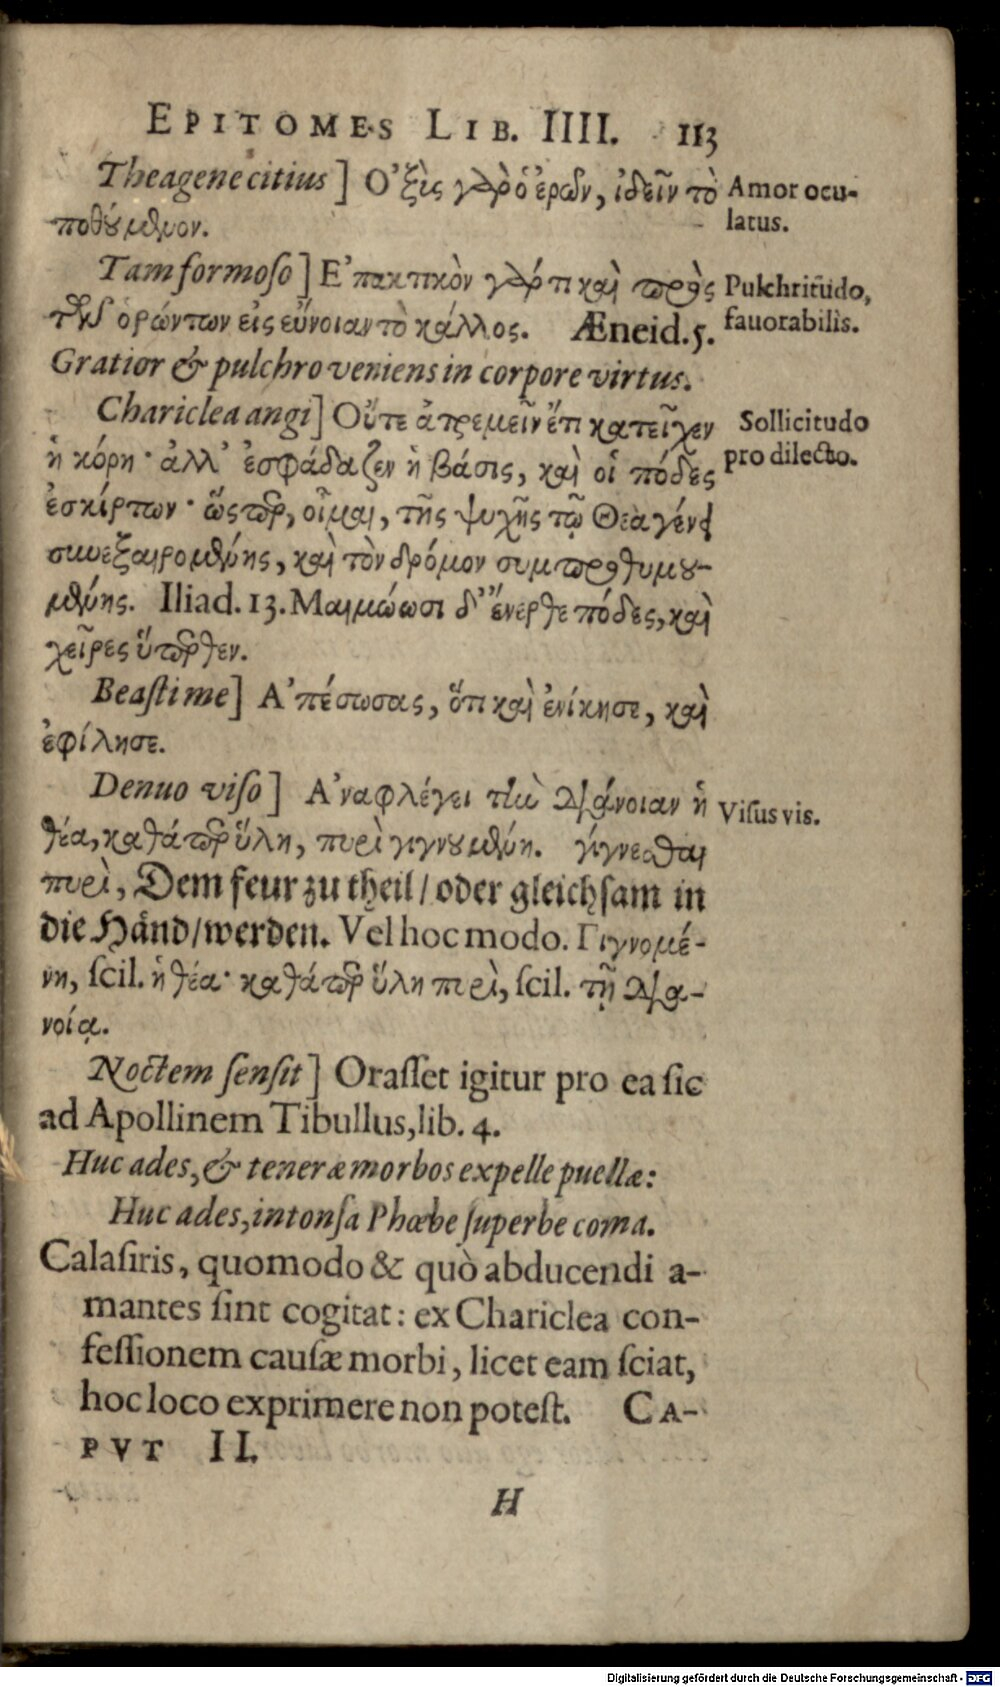 EPITOMES LIB. IIII. 113
Theagene citius] Ὀξὺς γὰρ ὁ ἐρῶν, ἰδεῖν τὸ
ποθούμενον.
Amor ocu-
latus.
Tam formoso] Ἐπακτικὸν γάρ τι καὶ πρὸς
τῶν ὁρώντων εἰς εὔνοιαν τὸ κάλλος. Æneid. 5.
Pulchritudo,
favorabilis.
Gratior & pulchro veniens in corpore virtus.
Chariclea angi] Οὔτε ἀτρεμεῖν ἔτι κατεῖχεν
ἡ κόρη· ἀλλ' ἐσφάδαζεν ἡ βάσις, καὶ οἱ πόδες
Sollicitudo
pro dilecto.
ἐσκίρτων· ὥσπερ, οἶμαι, τῆς ψυχῆς τῷ Θεαγένει
συνεξαιρομένης, καὶ τὸν δρόμον συμπροθυμου-
μένης. Iliad. 13. Μαιμώωσι δ' ἔνερθε πόδες, καὶ
χεῖρες ὕπερθεν.
Beasti me] Ἀπέσωσας, ὅτι καὶ ἐνίκησε, καὶ
ἐφίλησε.
Denuo viso] Ἀναφλέγει τὴν διάνοιαν ἡ
θέα, καθάπερ ὕλη, πυρὶ γιγνομένη. γίγνεσθαι
Visus vis.
πυρὶ, Dem feur zu theil/ oder gleichsam in
die Händ/ werden. Vel hoc modo. Γιγνομέ-
νη, scil. ἡ θέα· καθάπερ ὕλη πυρὶ, scil. τῇ δια-
νοίᾳ.
Noctem sensit] Orasset igitur pro ea sic
ad Apollinem Tibullus, lib. 4.
Huc ades, & teneræ morbos expelle puellæ:
Huc ades, intonsa Phœbe superbe coma.
Calasiris, quomodo & quò abducendi a-
mantes sint cogitat: ex Chariclea con-
fessionem causæ morbi, licet eam sciat,
hoc loco exprimere non potest. CA-
PVT II.
H
Digitalisierung gefördert durch die Deutsche Forschungsgemeinschaft - DFG